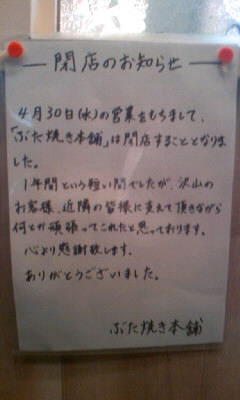 閉店のお知らせ
4月30日(水)の営業をもちまして、
「ぶた焼き本舗」は閉店することとなりま
した。
1年間という短い間でしたが、沢山の
お客様、近隣の皆様に支えて頂きながら
何とか頑張ってこれたと思っております。
心より感謝致します。
ありがとうございました。
ぶた焼き本舗